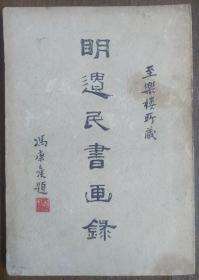 至樂樓所藏
明遺民書画錄
馮康矦題